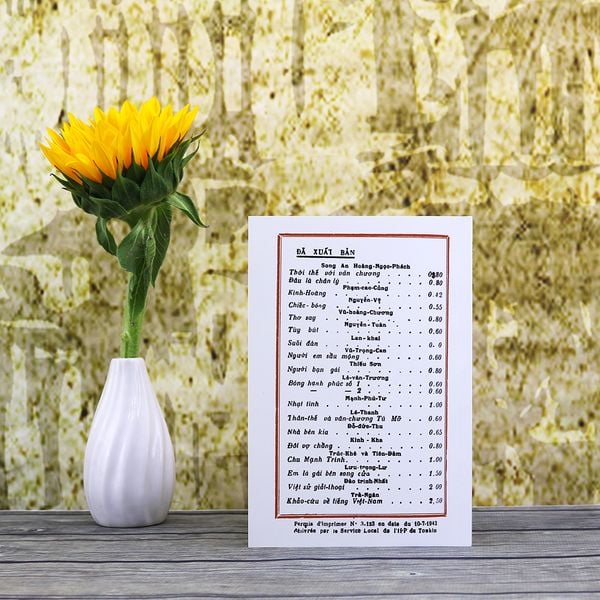 ĐÃ XUẤT BẢN
Song An Hoàng-Ngọc-Phách
Thời thế với văn chương . . . . 0$80
Đâu là chân lý . . . . . . . 0.80
Phạm-cao-Củng
Kinh-Hoàng . . . . . . . . 0.42
Nguyễn-Vỹ
Chiếc-bóng . . . . . . . . 0.55
Vũ-hoàng-Chương
Thơ say . . . . . . . . 0.80
Nguyễn-Tuân
Tùy bút . . . . . . . . 0.60
Lan-khai
Suối đàn . . . . . . . . 0. 0
Vũ-Trọng-Can
Người em sầu mộng . . . . . . 0.60
Thiếu Sơn
Người bạn gái . . . . . . . 0.80
Lê-văn-Trương
Bóng hạnh phúc số 1 . . . . . . 0.60
— — 2 . . . . . . 0.60
Mạnh-Phú-Tư
Nhạt tình . . . . . . . . 1.00
Lê-Thanh
Thân-thế và văn-chương Tú Mỡ . . . 0.60
Đỗ-đức-Thu
Nhà bên kia . . . . . . . 0.65
Kinh - Kha
Đôi vợ chồng . . . . . . . 0.80
Trúc-Khê và Tiên-Đàm
Chu Mạnh Trinh. . . . . . . 1.00
Lưu-trọng-Lư
Em là gái bên song cửa . . . . . 1.50
Đào trinh-Nhất
Việt sử giai-thoại . . . . . . 2 00
Trà-Ngân
Khảo-cứu về tiếng Việt-Nam . . . . 2,50
Permis d'imprimer N° 3.123 en date du 10-7-1943
délivrée par le Service Local de l'IPP du Tonkin